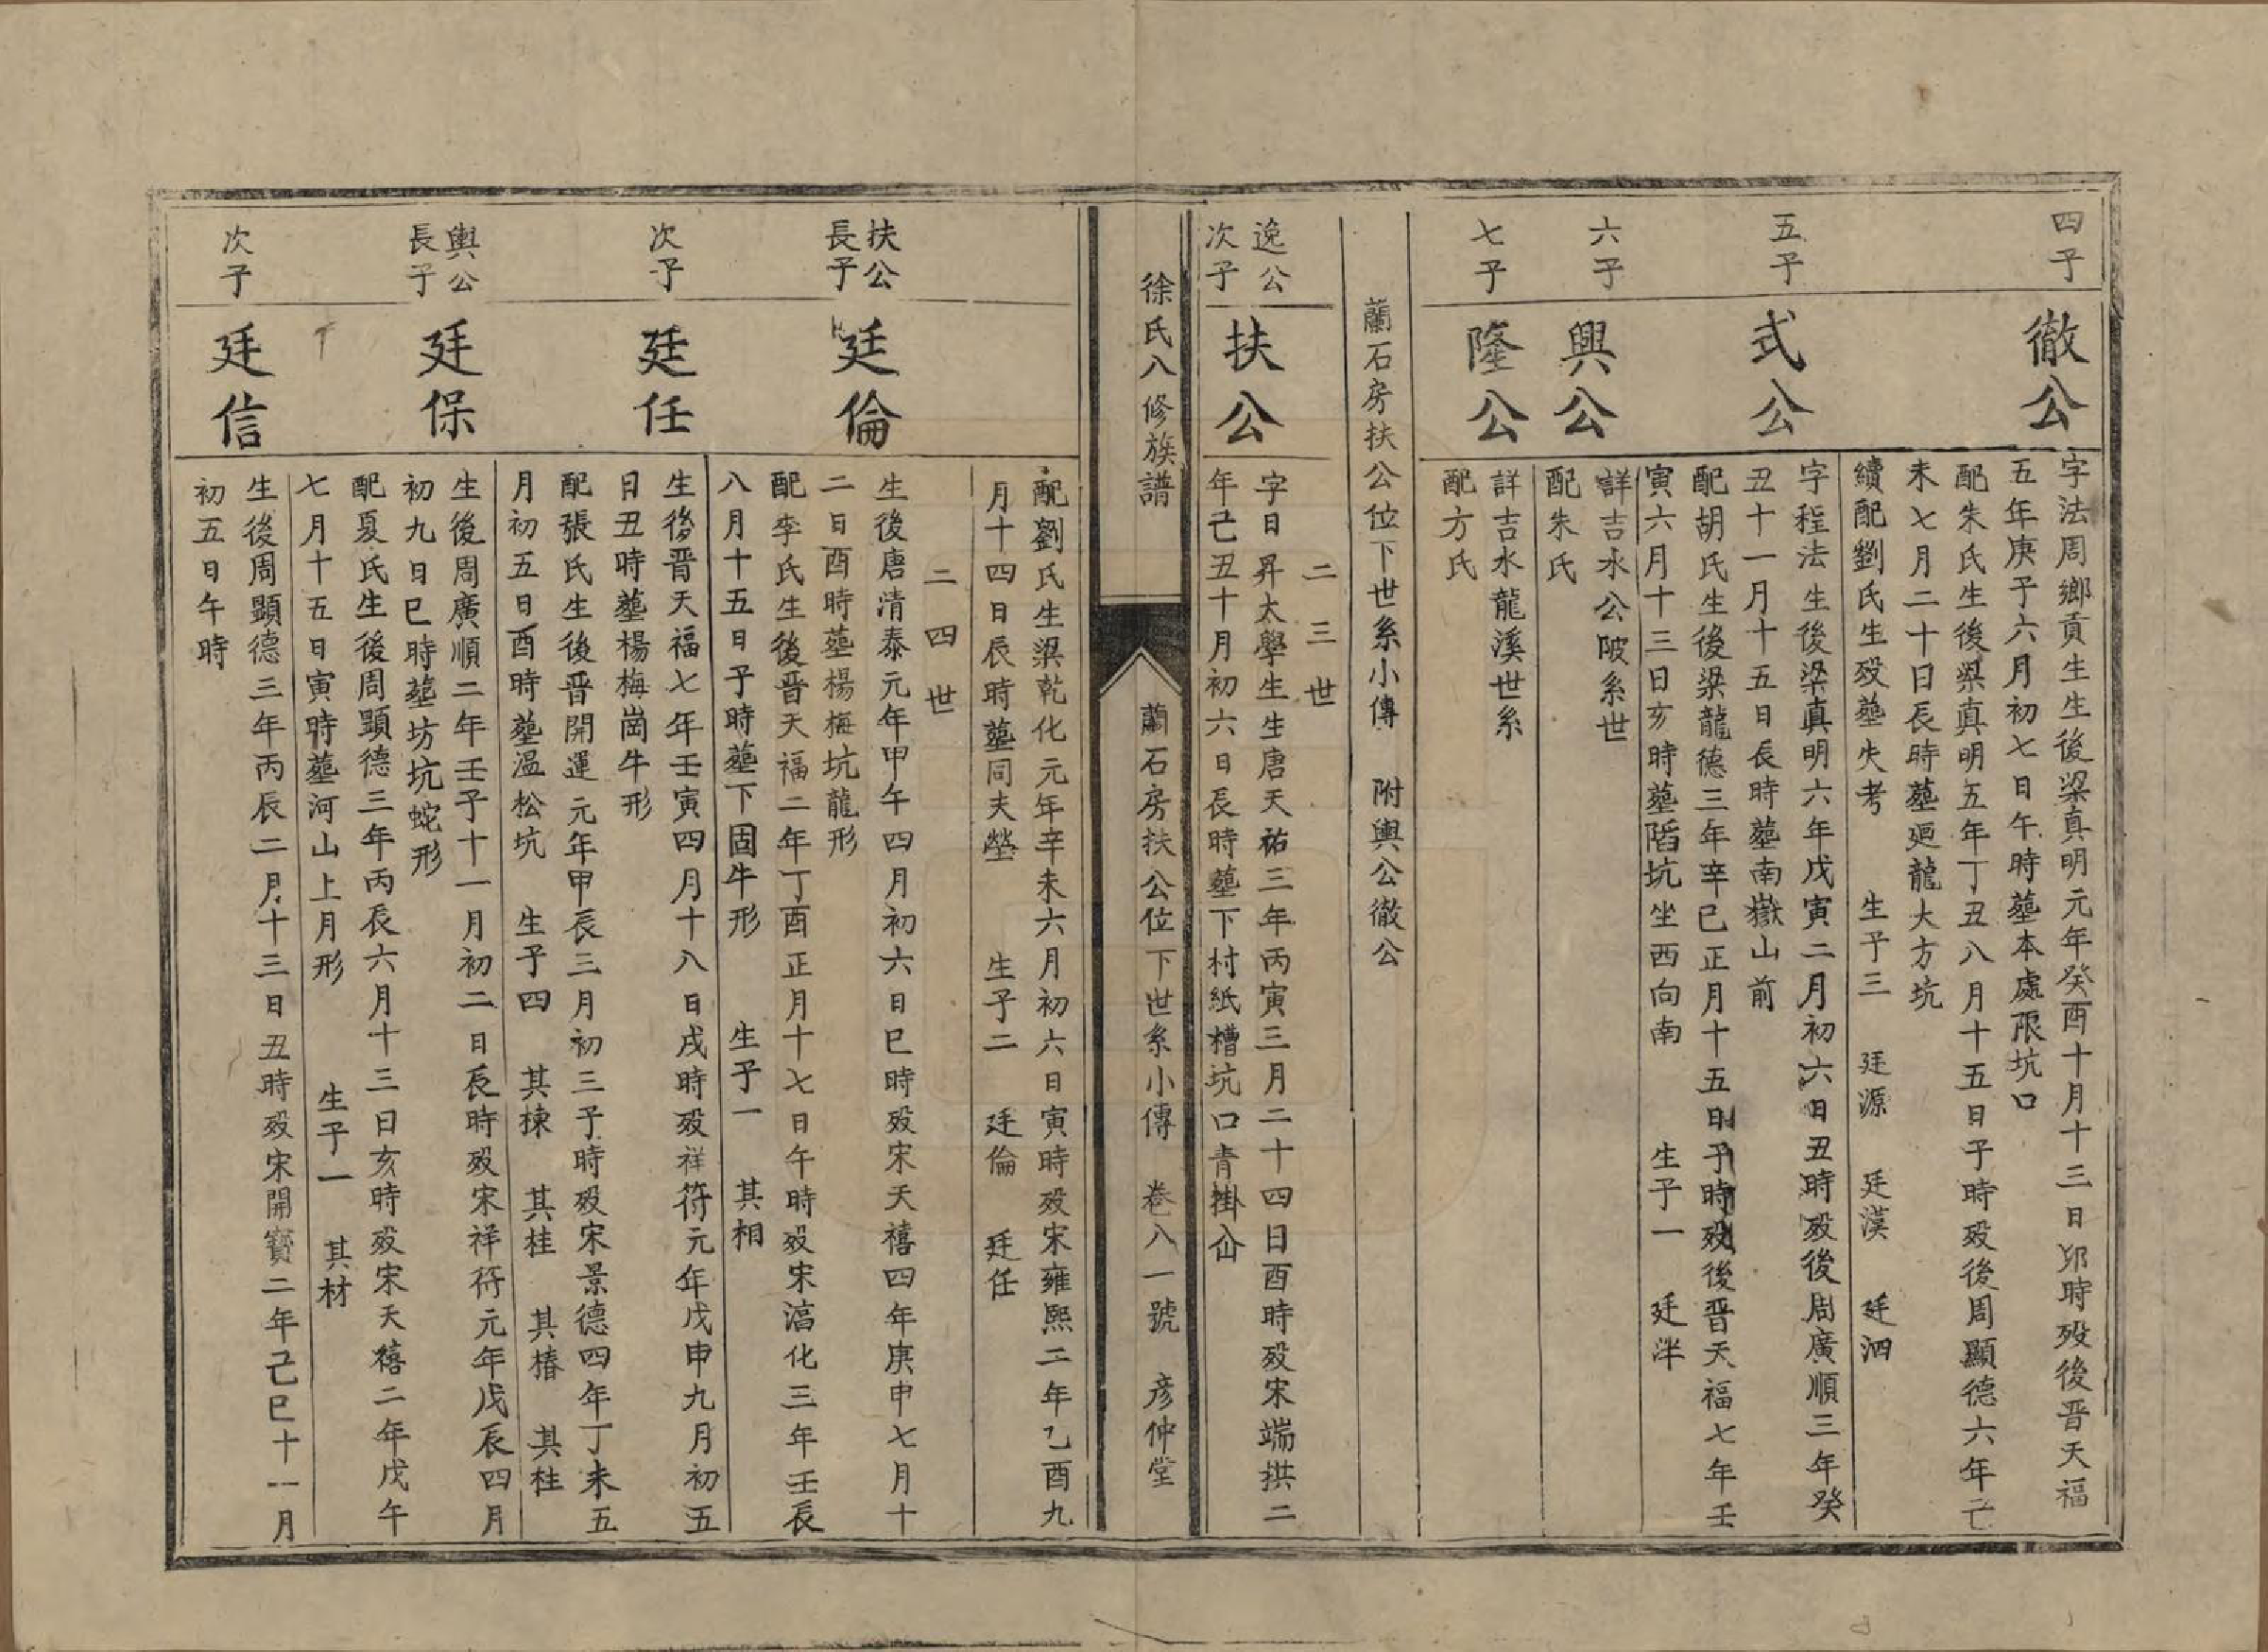 四子
徹公
字法周鄉貢生生後梁真明元年癸酉十月十三日卯時歿後晋天福
五年庚子六月初七日午時墓本處限坑口
配朱氏生後梁真明五年丁丑八月十五日子時歿後周顯德六年己
未七月二十日辰時墓廻龍大方坑
續配劉氏生歿墓失考 生子三 廷源 廷漢 廷泗
五子
式公
字程法生後梁真明六年戊寅二月初六日丑時歿後周廣順三年癸
丑十一月十五日長時墓南嶽山前
配胡氏生後梁龍德三年辛巳正月十五日子時歿後晋天福七年壬
寅六月十三日亥時墓㘐坑坐西向南 生子一 廷泮
六子
興公
詳吉水公陂系世
配朱氏
七子
隆公
詳吉水龍溪世系
配方氏
蘭石房扶公位下世系小傳 附輿公徹公
二三世
逸公
次子
扶公
字日昇太學生生唐天祐三年丙寅三月二十四日酉時歿宋端拱二
年己丑十月初六日長時墓下村紙槽坑口青掛仚
徐氏八修族譜
蘭石房扶公位下世系小傳 卷八一號 彦仲堂
配劉氏生梁乾化元年辛未六月初六日寅時歿宋雍熙二年乙酉九
月十四日辰時墓同夫塋 生子二 廷倫 廷任
二四世
扶公
長子
廷倫
生後唐清泰元年甲午四月初六日巳時歿宋天禧四年庚申七月十
二日酉時墓楊梅坑龍形
配李氏生後晋天福二年丁酉正月十七日午時歿宋滈化三年壬辰
八月十五日子時墓下固牛形 生子一 其相
次子
廷任
生後晋天福七年壬寅四月十八日戌時歿祥符元年戊申九月初五
日丑時墓楊梅崗牛形
配張氏生後晋開運元年甲辰三月初三子時歿宋景德四年丁未五
月初五日酉時墓溫松坑 生子四 其棟 其桂 其椿 其桂
輿公
長子
廷保
生後周廣順二年壬子十一月初二日辰時歿宋祥符元年戊辰四月
初九日巳時墓坊坑蛇形
配夏氏生後周顯德三年丙辰六月十三日亥時歿宋天禧二年戊午
七月十五日寅時墓河山上月形 生子一 其材
次子
廷信
生後周顯德三年丙辰二月十三日丑時歿宋開寳二年己巳十一月
初五日午時